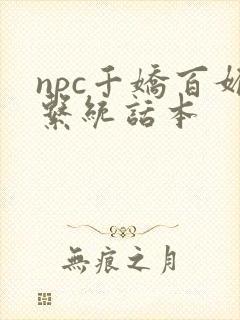 npc千嬌百媚
繫統話本
無痕之月